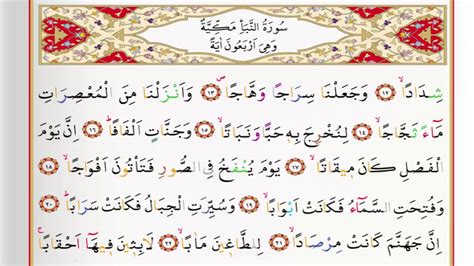 سُورَةُ النَّبَأِ مَكِّيَّةٌ
وَهِيَ اَرْبَعُونَ اٰيَةً
شِدَادًاۙ ﴿١٢﴾ وَجَعَلْنَا سِرَاجًا وَهَّاجًاۖ ﴿١٣﴾ وَاَنْزَلْنَا مِنَ الْمُعْصِرَاتِ
مَٓاءً ثَجَّاجًاۙ ﴿١٤﴾ لِنُخْرِجَ بِه۪ حَبًّا وَنَبَاتًاۙ ﴿١٥﴾ وَجَنَّاتٍ اَلْفَافًاۜ ﴿١٦﴾ اِنَّ يَوْمَ
الْفَصْلِ كَانَ م۪يقَاتًاۙ ﴿١٧﴾ يَوْمَ يُنْفَخُ فِي الصُّورِ فَتَأْتُونَ اَفْوَاجًاۙ ﴿١٨﴾
وَفُتِحَتِ السَّمَٓاءُ فَكَانَتْ اَبْوَابًاۙ ﴿١٩﴾ وَسُيِّرَتِ الْجِبَالُ فَكَانَتْ سَرَابًاۜ ﴿٢٠﴾
اِنَّ جَهَنَّمَ كَانَتْ مِرْصَادًاۙ ﴿٢١﴾ لِلطَّاغ۪ينَ مَاٰبًاۙ ﴿٢٢﴾ لَابِث۪ينَ ف۪يهَٓا اَحْقَابًاۚ